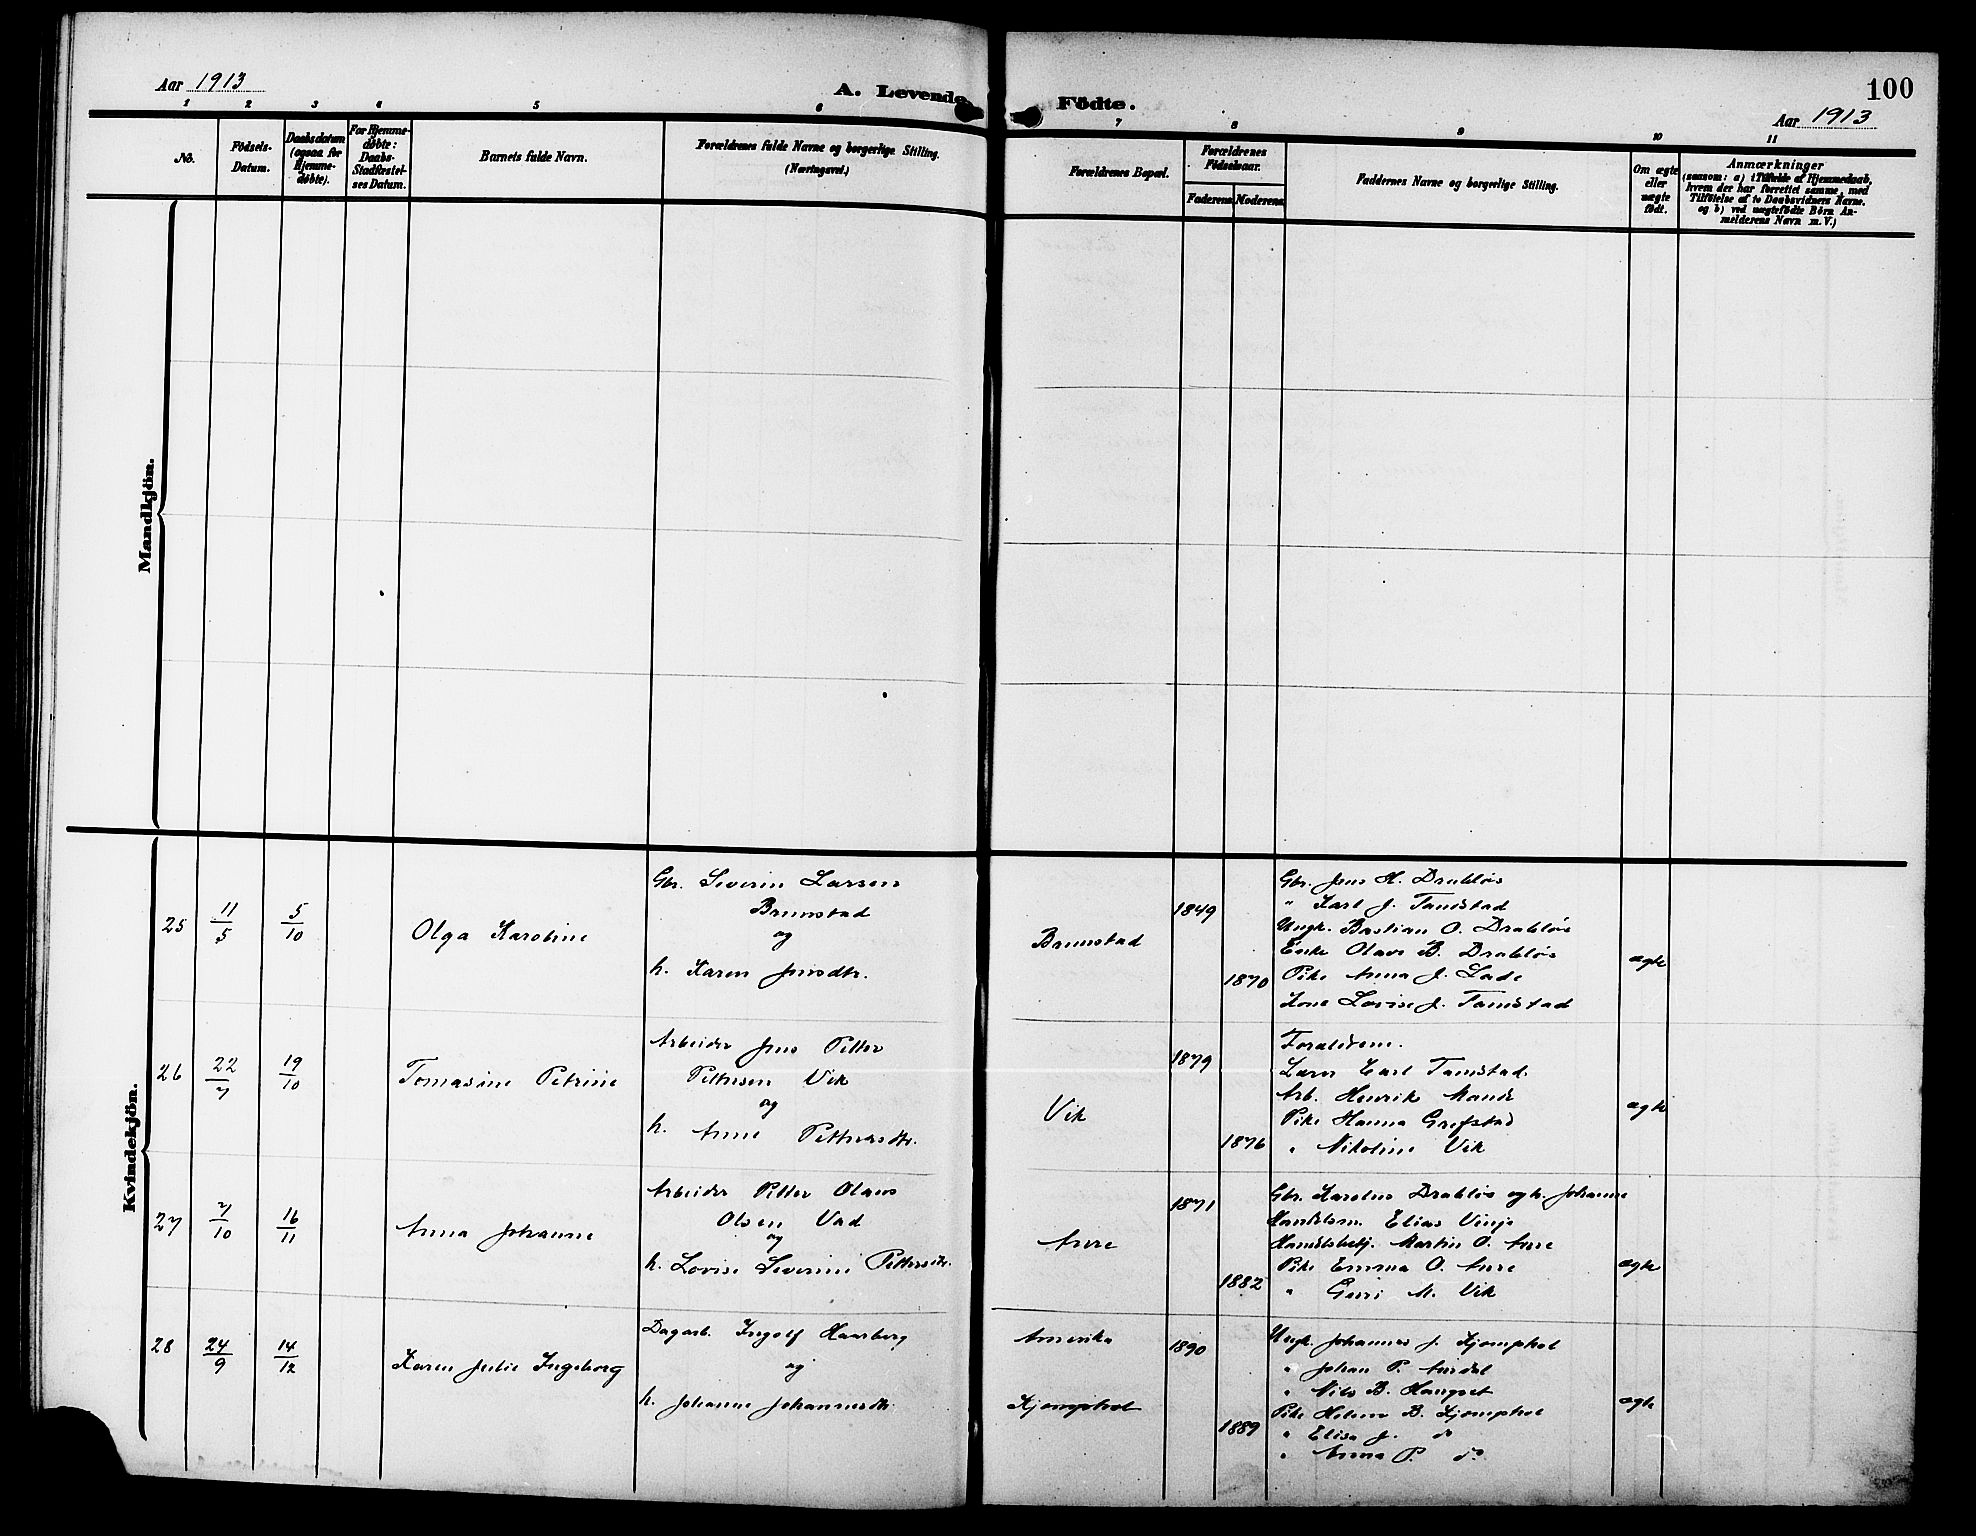 Aar 1913
A. Levende
Födte.
100
Aar 1913
1 2 3 4 5 6 7 8 9 10 11
No.
Födsels-
Datum.
Daabsdatum
(ogsaa for
Hjemme-
døbte).
For Hjemme-
døbte:
Daabs-
Stadfæstel-
ses Datum.
Barnets fulde Navn.
Forældrenes fulde Navne og borgerlige Stilling.
(Næringsvei.)
Forældrenes Bopæl.
Forældrenes
Födselsaar.
Faderens
Moderens
Faddernes Navne og borgerlige Stilling.
Om ægte
eller
uægte
født.
Anmærkninger
(saasom: a) i Tilfælde af Hjemmedaab,
hvem der har forrettet samme, med
Tilføielse af to Daabsvidners Navne.
og b) ved uægtefødte Börn An-
melderens Navn m. V.)
Mandkjön.
Kvindekjön.
25
11/5
5/10
Olga Karoline
Gbr. Severin Larsen
Brunstad
og
h. Karen Jensdtr.
Brunstad
1849
1870
Gbr. Jens H. Drabløs
" Karl J. Tandstad
Ungk. Bastian O. Drabløs
Enke Olave B. Drabløs
Pike Anna J. Lade
Kone Lovise J. Tandstad
ægte
26
22/7
19/10
Tomasine Petrine
Arbeider Jens Petter
Pettersen Vik
og
h. Anne Pettersdtr.
Vik
1879
1876
Forældrene.
Lærer Carl Tandstad
Arb. Henrik
Pike Hanna Grefstad
" Nikoline Vik
ægte
27
7/10
16/11
Anna Johanne
Arbeider Petter Olaus
Olsen Vad
og
h. Lovise Severine Pettersdtr.
Aure
1871
1882
Gbr. Karolus Drabløs og h. Johanne
Handelsm. Elias Vinje
Handelsbetj. Martin O. Aure
Pike Emma O. Aure
" Guri M. Vik
ægte
28
24/9
14/12
Karen Julie Ingeborg
Dagarb. Ingolf Haarberg
og
h. Johanne Johannesdtr.
Amerika
Kjemphol
1890
1889
Ungk. Johannes J. Kjemphol
" Johan P. Aurdal
" Nils B. Haugset
Pike Helene B. Kjemphol
" Elise J. do
" Anna P. do
ægte